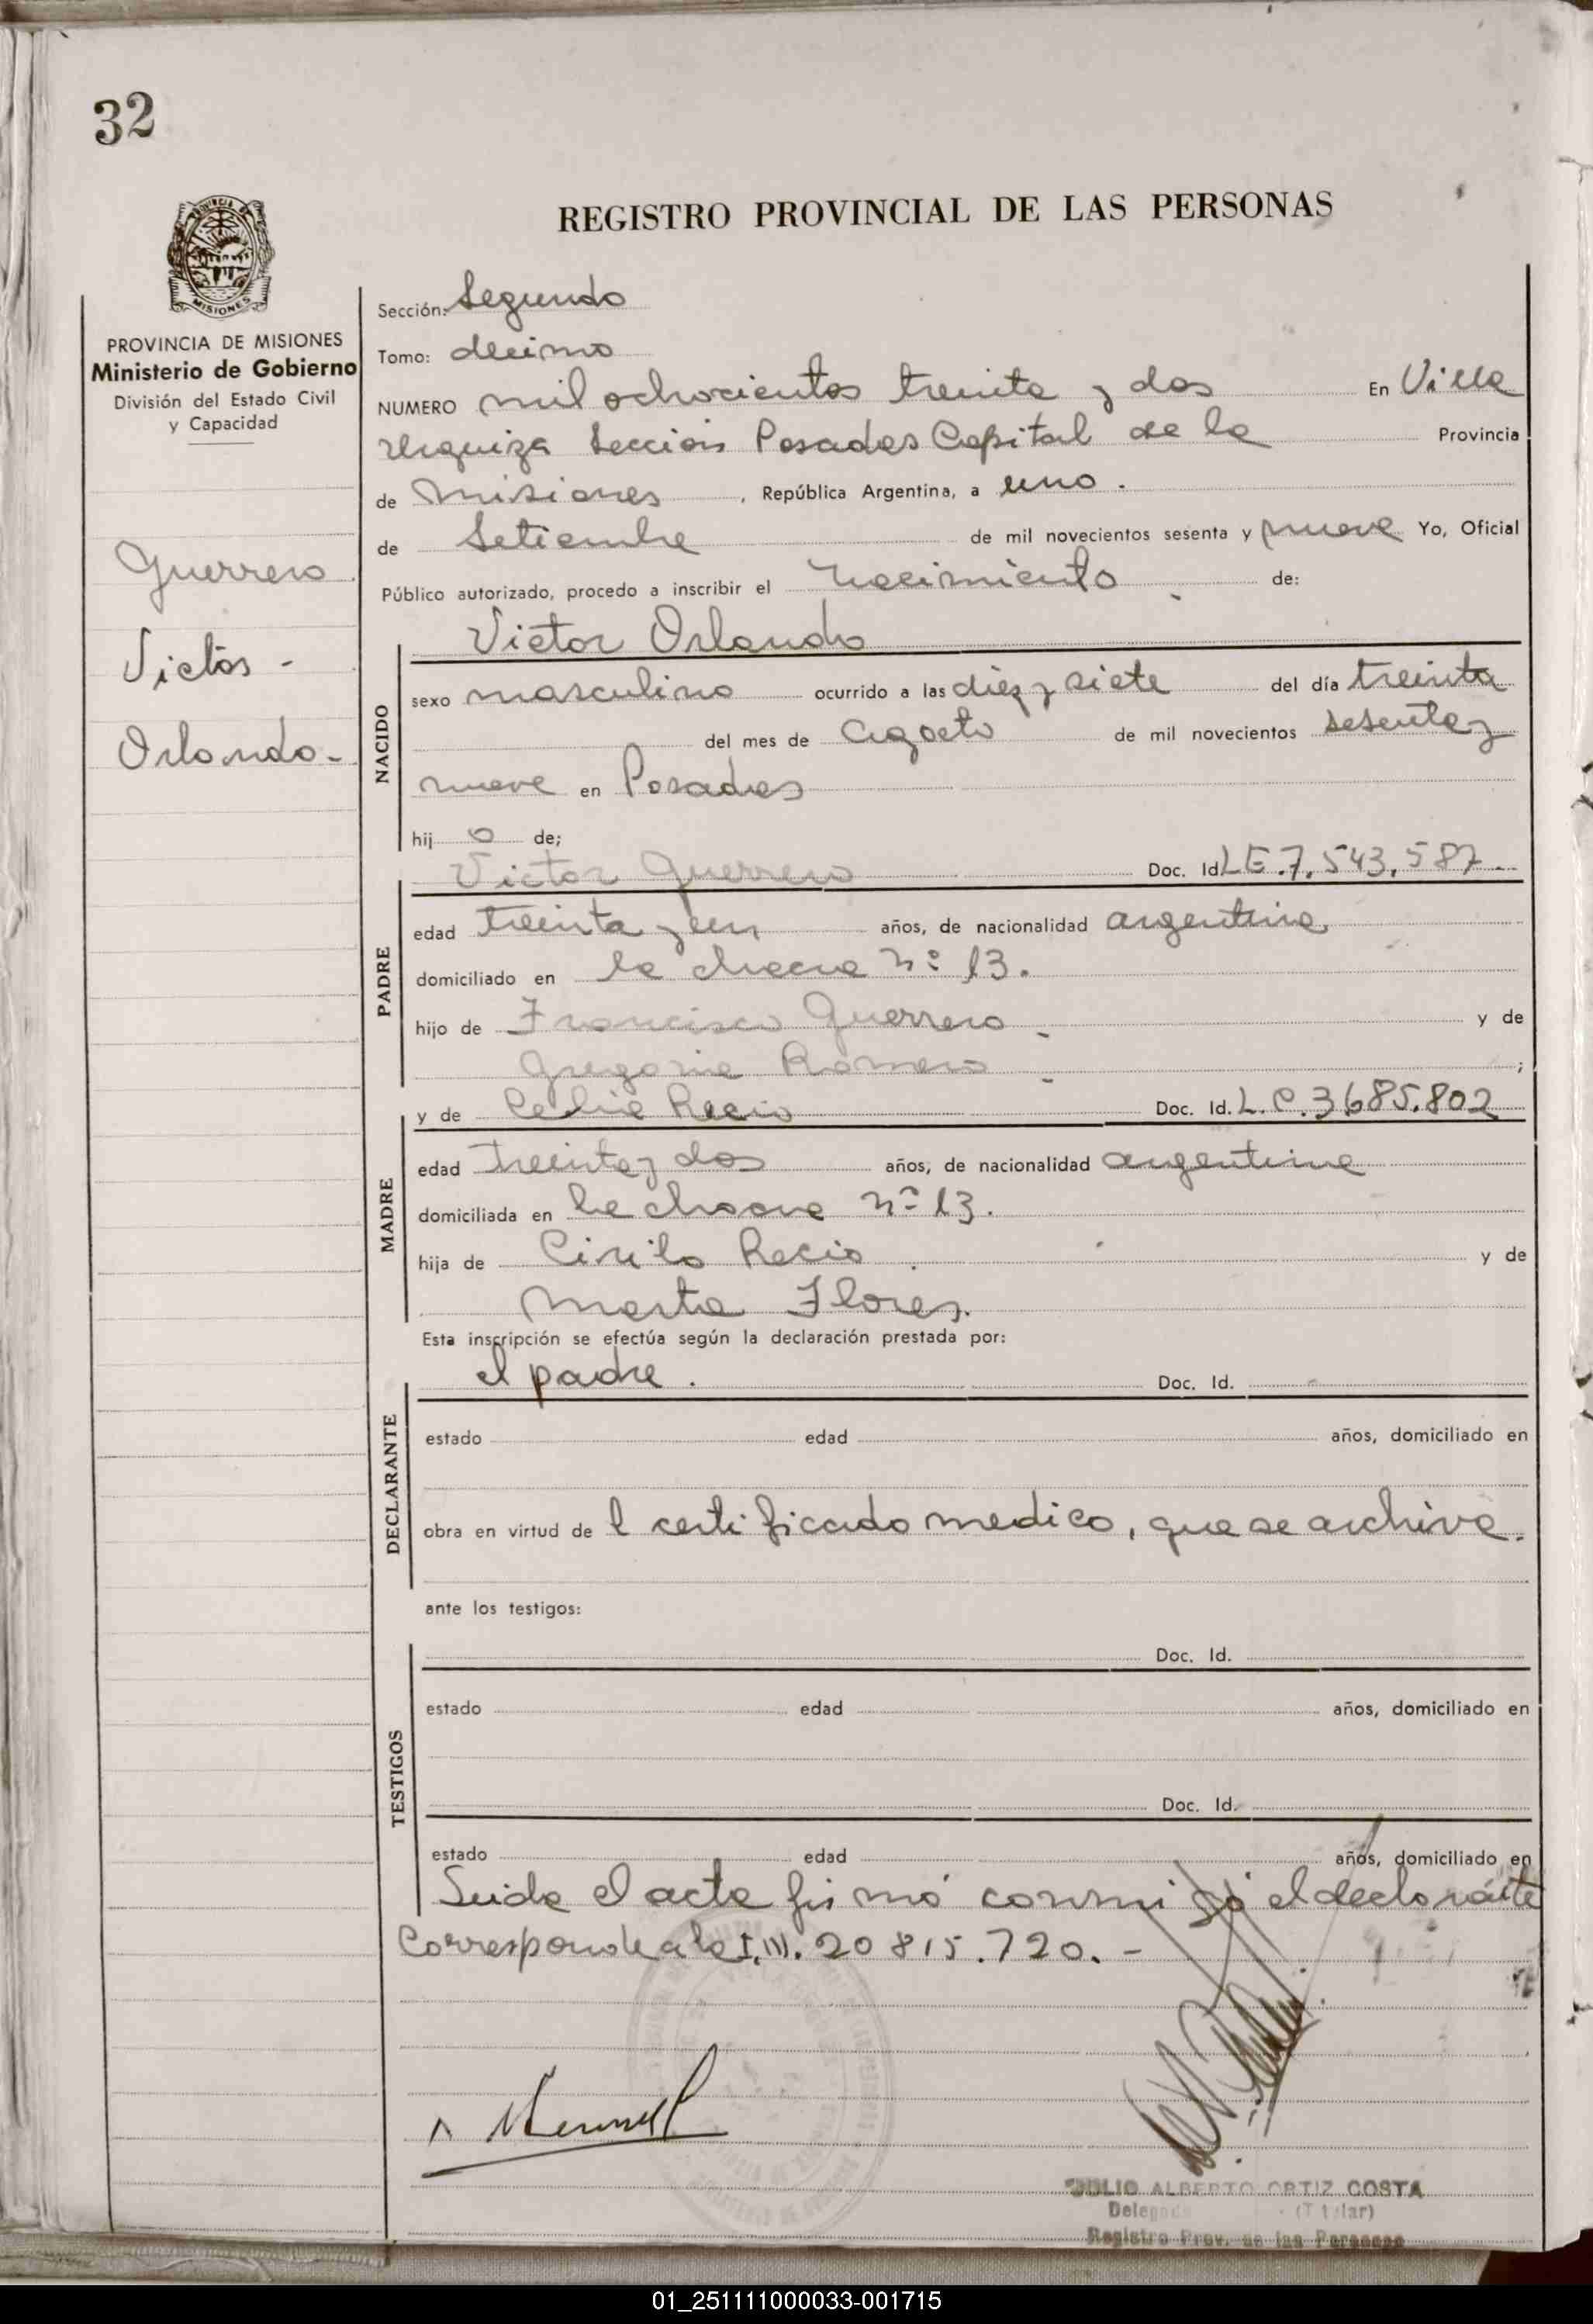 32
REGISTRO PROVINCIAL DE LAS PERSONAS
PROVINCIA DE MISIONES
Ministerio de Gobierno
División del Estado Civil
y Capacidad
Guerrero
Victor -
Orlando -
Sección: Segundo
Tomo: decimo
NUMERO mil ochocientos treinta y dos En Villa
Urquiza Sección Posadas Capital de la Provincia
de Misiones , República Argentina, a uno .
de Setiembre de mil novecientos sesenta y nueve Yo, Oficial
Público autorizado, procedo a inscribir el nacimiento de:
Victor Orlando
NACIDO
sexo masculino ocurrido a las diez y siete del día treinta
del mes de Agosto de mil novecientos sesenta y
nueve en Posadas
hij o de;
Victor Guerrero Doc. Id. LE.7.543.587.
PADRE
edad treinta y un años, de nacionalidad argentina
domiciliado en la chacra nº 13.
hijo de Francisco Guerrero y de
Gregoria Romero ;
y de Celia Recio Doc. Id. L.C.3685.802
MADRE
edad treinta y dos años, de nacionalidad argentina
domiciliada en la chacra nº 13.
hija de Cirilo Recio y de
Marta Flores.
Esta inscripción se efectúa según la declaración prestada por:
el padre . Doc. Id.
DECLARANTE
estado edad años, domiciliado en
obra en virtud de l certificado medico, que se archiva.
ante los testigos:
Doc. Id.
TESTIGOS
estado edad años, domiciliado en
Doc. Id.
estado edad años, domiciliado en
Leida el acta firmó conmigo el declarante
Corresponde a la I.M. 20 815.720. -
JULIO ALBERTO ORTIZ COSTA
Delegado (Titular)
Registro Prov. de las Personas
01_251111000033-001715